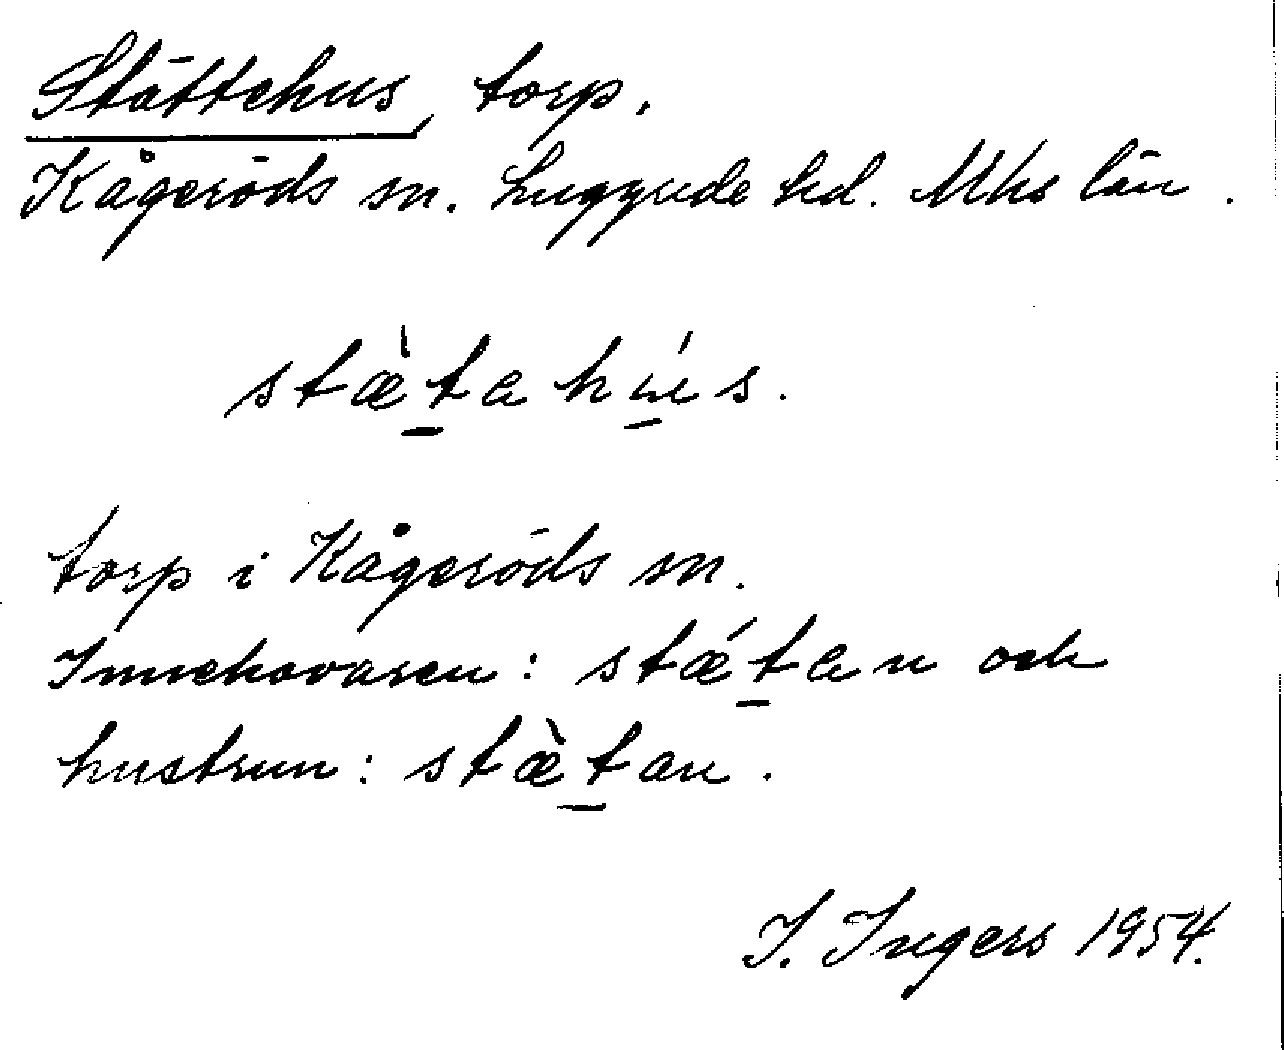 Stättehus, torp.
Kågeröds sn. Luggude hd. Mhs län.
stæ̀t̲ahú̲s.
torp i Kågeröds sn.
Innehavaren: stǽt̲an och
hustrun: stæ̀t̲an.
I. Ingers 1954.